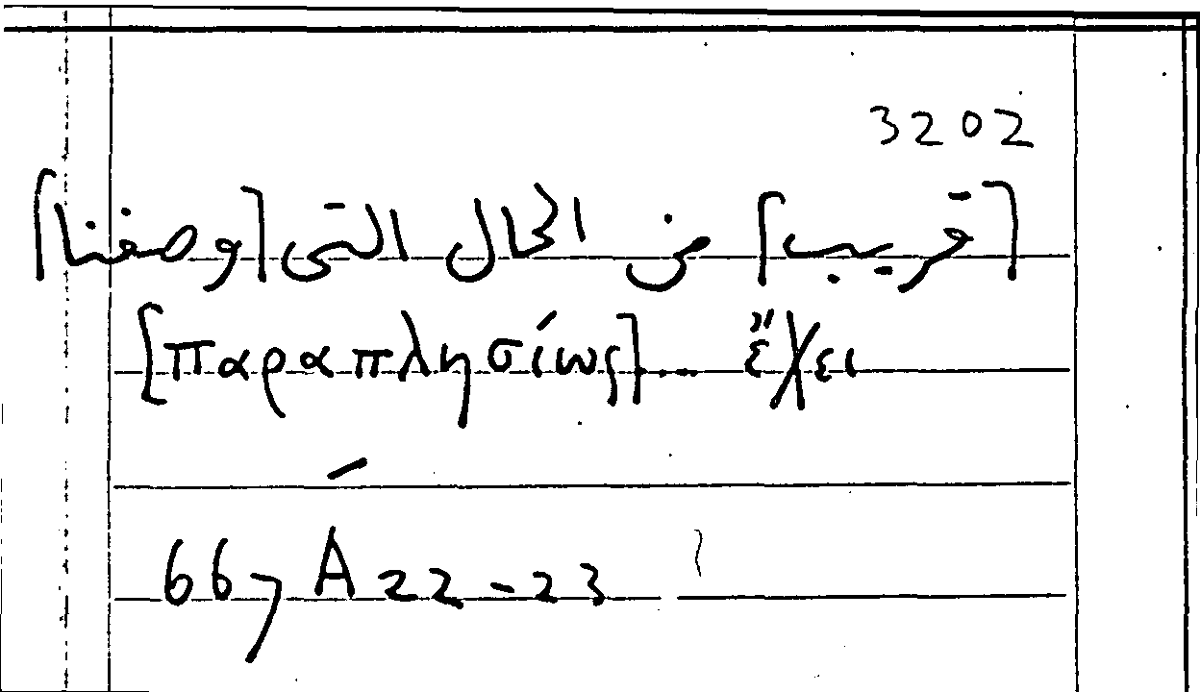 3202
[قريب] من الحال التى [وصفنا]
[παραπλησίως]... ἔχει
667 A 22-23